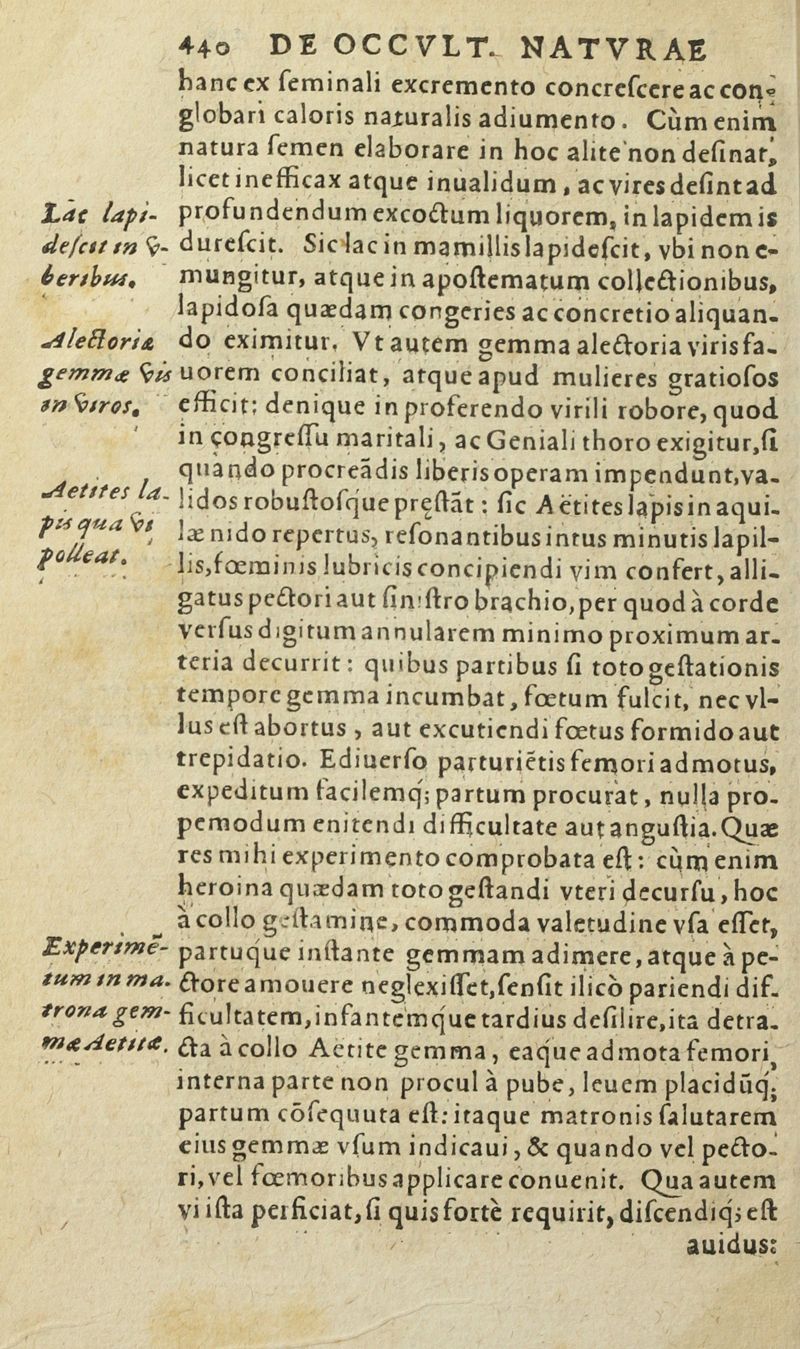 440 DE OCCVLT. NATVRAE
hanc ex ſeminali excremento concreſcere ac con-
globari caloris naturalis adiumento. Cùm enim
natura ſemen elaborare in hoc alite non deſinat,
licet inefficax atque inualidum, ac vires deſint ad
profundendum excoctum liquorem, in lapidem is
dureſcit. Sic lac in mamillis lapideſcit, vbi non e-
mungitur, atque in apoſtematum collectionibus,
lapidoſa quædam congeries ac concretio aliquan-
do eximitur. Vt autem gemma alectoria viris fa-
uorem conciliat, atque apud mulieres gratioſos
efficit; denique in proferendo virili robore, quod
in congreſſu maritali, ac Geniali thoro exigitur, ſi
quando procreãdis liberis operam impendunt, va-
lidos robuſtoſque pręſtãt: ſic Aëtites lapis in aqui-
læ nido repertus, reſonantibus intus minutis lapil-
lis, fœminis lubricis concipiendi vim confert, alli-
gatus pectori aut ſiniſtro brachio, per quod à corde
verſus digitum annularem minimo proximum ar-
teria decurrit: quibus partibus ſi toto geſtationis
tempore gemma incumbat, fœtum fulcit, nec vl-
lus eſt abortus, aut excutiendi fœtus formido aut
trepidatio. Ediuerſo parturiẽtis femori admotus,
expeditum facilemq; partum procurat, nulla pro-
pemodum enitendi difficultate aut anguſtia. Quæ
res mihi experimento comprobata eſt: cùm enim
heroina quædam toto geſtandi vteri decurſu, hoc
à collo geſtamine, commoda valetudine vſa eſſet,
partuque inſtante gemmam adimere, atque à pe-
ctore amouere neglexiſſet, ſenſit ilicò pariendi dif-
ficultatem, infantemque tardius deſilire, ita detra-
cta à collo Aëtite gemma, eaque admota femori,
interna parte non procul à pube, leuem placidũq;
partum cõſequuta eſt: itaque matronis ſalutarem
eius gemmæ vſum indicaui, & quando vel pecto-
ri, vel fœmoribus applicare conuenit. Qua autem
vi iſta perficiat, ſi quis fortè requirit, diſcendiq; eſt
auidus:
Lac lapi-
deſcit in v-
beribus.
Alectoriæ
gemmæ vis
in viros.
Aetites la-
pis qua vi
polleat.
Experimẽ-
tum in ma-
trona gem-
mæ Aetitæ.